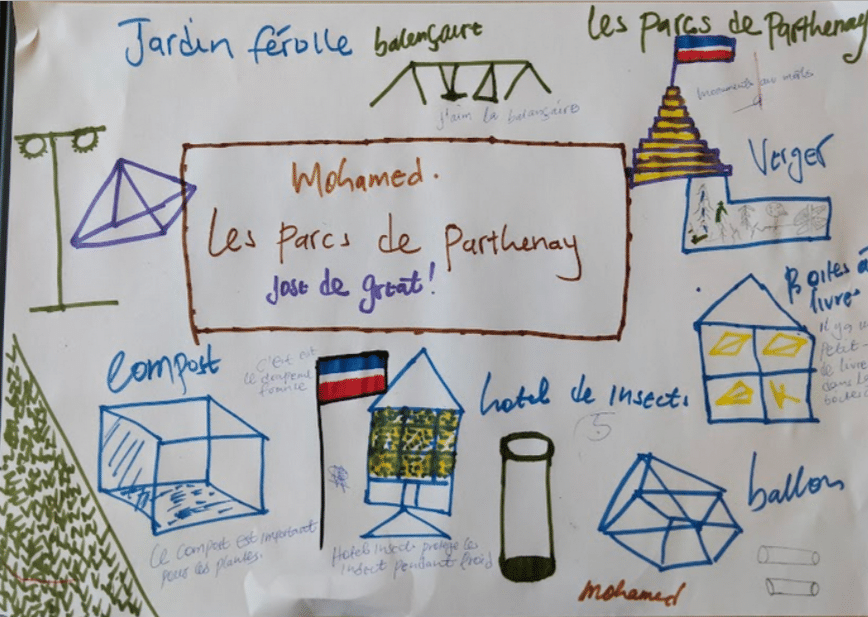 Jardin férolle
balençaire
les parcs de Parthenay
j'aim la balençaire
Monuments aux
Verger
Mohamed.
Les parcs de Parthenay
Jost de great!
Boites à
livres
il y a
Petit
de livre
dans la
compost
C'est est
le drapeau
france
hotel de insects
5
ballon
Ce compost est important
pour les plantes.
Hotel insect protège les
insect pendant froid
Mohamed